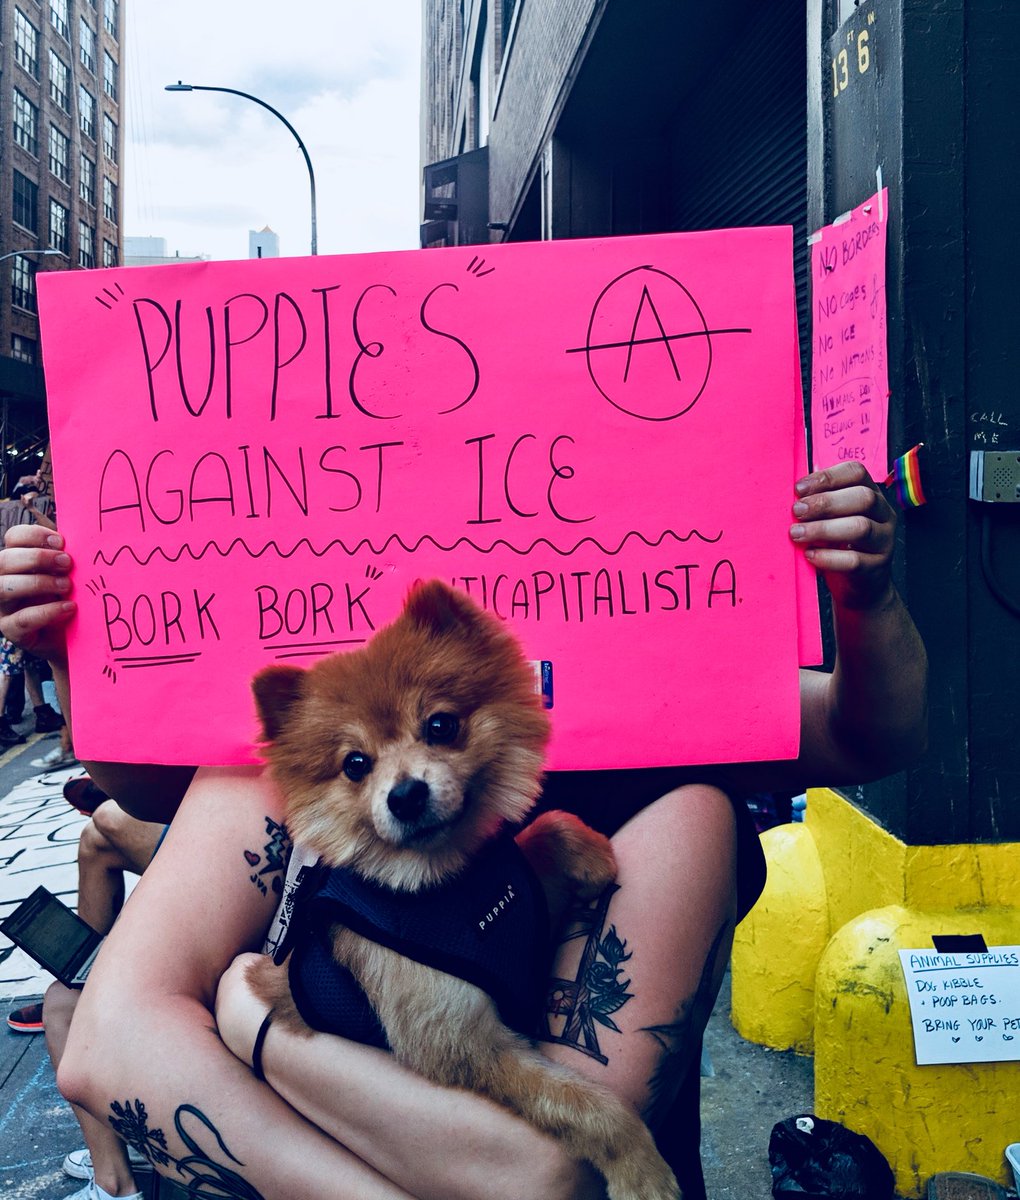 13 FT 6 IN
"PUPPIES" A
AGAINST ICE
"BORK BORK" ANTICAPITALISTA.
NO BORDERS
NO CAGES
NO ICE
NO NATIONS
HUMANS DON'T
BELONG IN
CAGES
CALL
ME
PUPPIA
JVA
ANIMAL SUPPLIES
DOG KIBBLE
+ POOP BAGS.
BRING YOUR PET